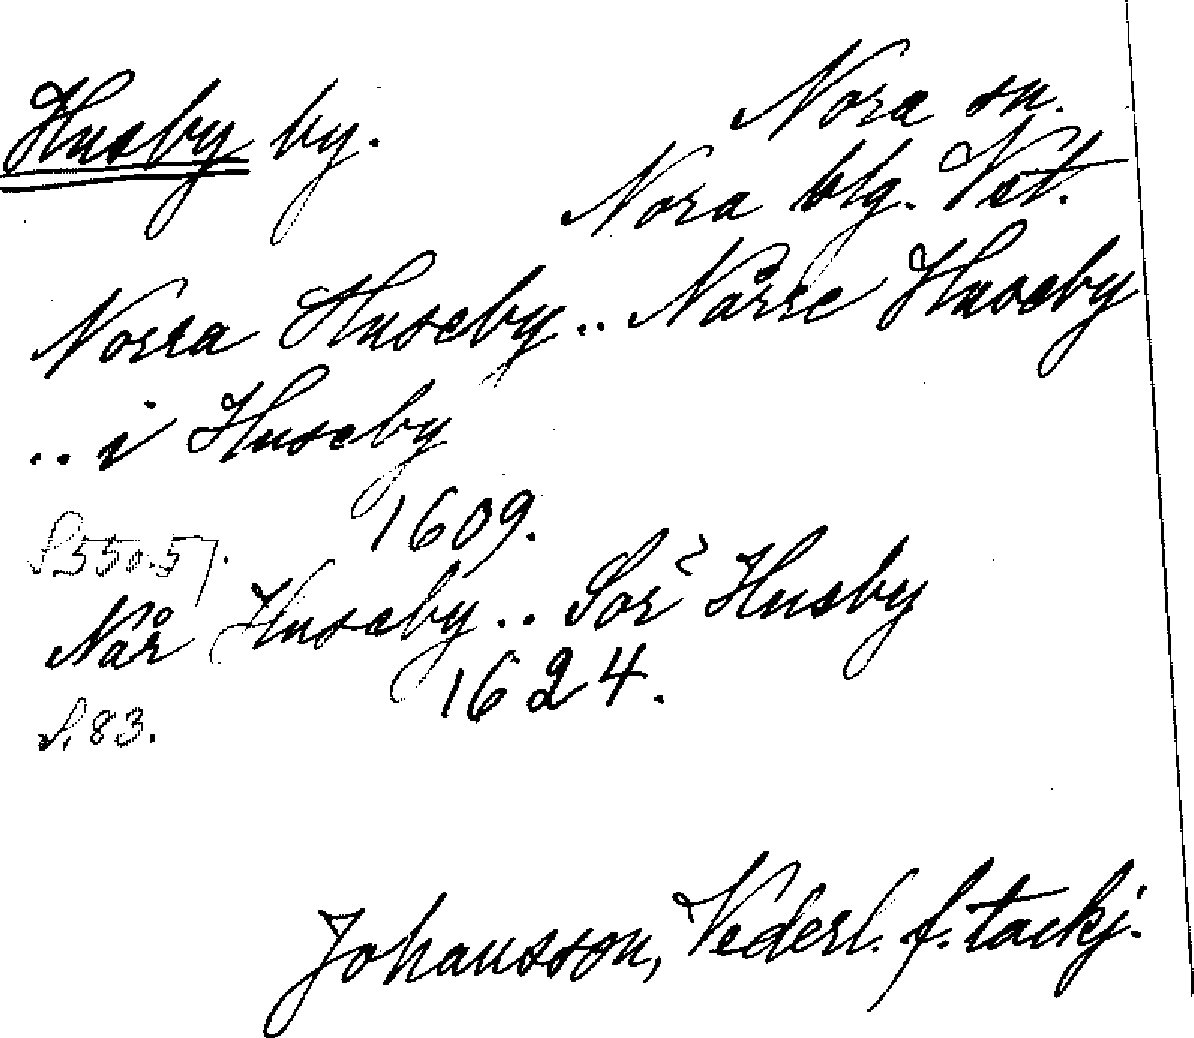 Husby by.
Nora sn.
Nora blg. Vst.
Norra Huseby.. Nårre Huseby
.. i Huseby
1609.
S. 550.57.
Når Huseby.. Sör Husby
1624.
S. 83.
Johansson, Vederl. f. tackj.